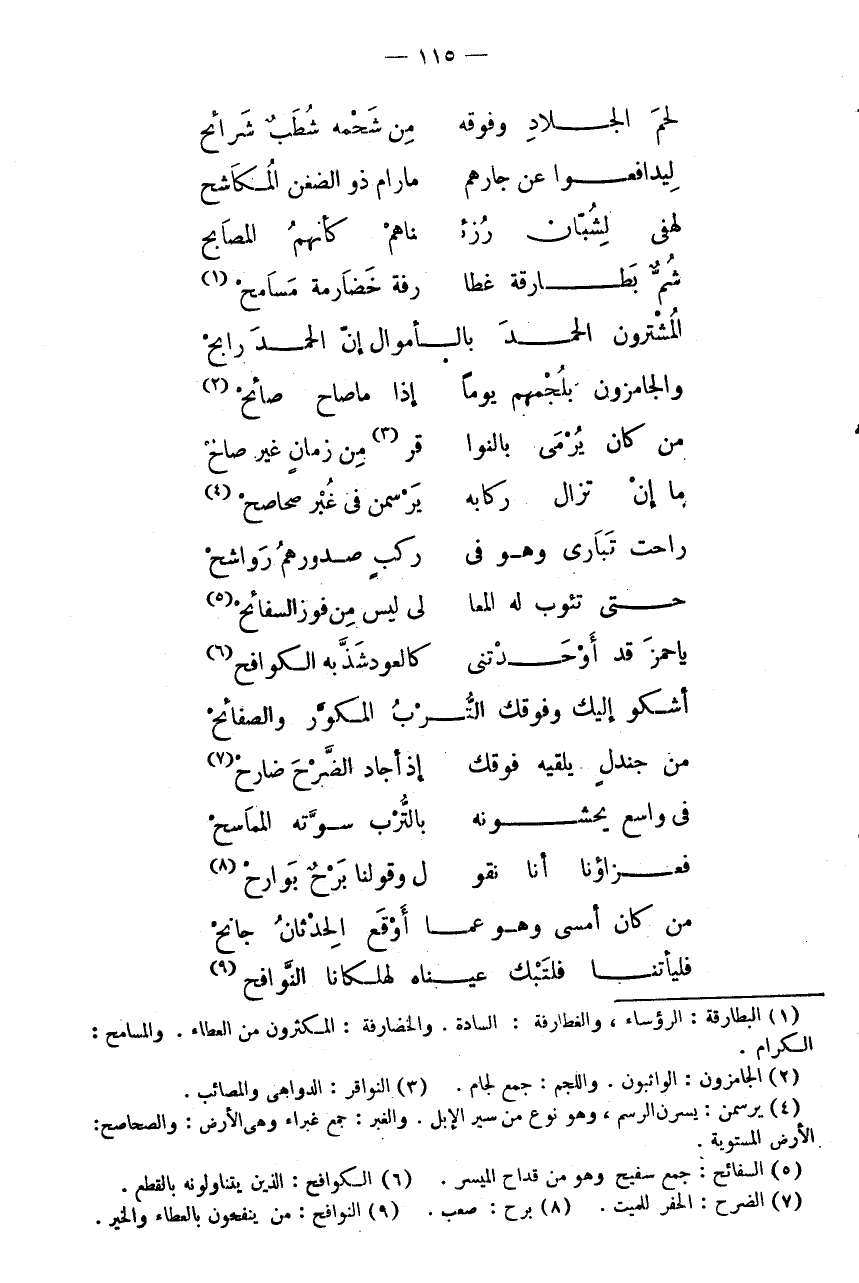 — ١١٥ —
لحمَ الجلادِ وفوقه مِن شَحْمه شُطَبٌ شَرائح
لِيدافعوا عن جارهم مارام ذو الضغن المُكاشح
لهفى لِشُبّان رُزئ ناهمْ كأنهمُ المصابح
شُمٌّ بَطارقة غطا رفة خَضارمة مَسَامحْ (١)
المُشْترون الحمدَ بالأموال إنّ الحمدَ رابحْ
والجامزون بلُجْمهم يوماً إذا ماصاح صائحْ (٢)
من كان يُرْمَى بالنوا قر (٣) مِن زمانٍ غير صالحْ
ما إنْ تزال ركابه يَرْسمن فى غُبْر صحاصحْ (٤)
راحت تَبَارى وهو فى ركبٍ صدورهمُ رَواشحْ
حتى تئوب له المعا لى ليس مِن فوز السفائحْ (٥)
ياحمزَ قد أَوْحَدْتنى كالعود شَذَّ به الكوافح (٦)
أشكو إليك وفوقك التُّرْبُ المكوَّر والصفائحْ
من جندلٍ يلقيه فوقك إذ أجاد الضَّرْحَ ضارحْ (٧)
فى واسع يحشونه بالتُّرْب سوَّته المماَسحْ
فعزاؤنا أنا نقو ل وقولنا بَرْحٌ بَوارحْ (٨)
من كان أمسى وهو عما أَوْقَع الحِدْثانُ جانحْ
فليأتنا فلتَبْك عيناه لهلكانا النَّوافح (٩)
(١) البطارقة : الرؤساء ، والغطارفة : السادة . والخضارفة : المكثرون من العطاء . والمسامح :
الكرام .
(٢) الجامزون : الواثبون . واللجم : جمع لجام . (٣) النواقر : الدواهى والمصائب .
(٤) يرسمن : يسرن الرسم ، وهو نوع من سير الإبل . والغبر : جمع غبراء وهى الأرض : والصحاصح:
الأرض المستوية .
(٥) السفائح : جمع سفيح وهو من قداح الميسر . (٦) الكوافح : الذين يتناولونه بالقطع .
(٧) الضرح : الحفر للميت . (٨) برح : صعب . (٩) النوافح : من ينفحون بالعطاء والخير .